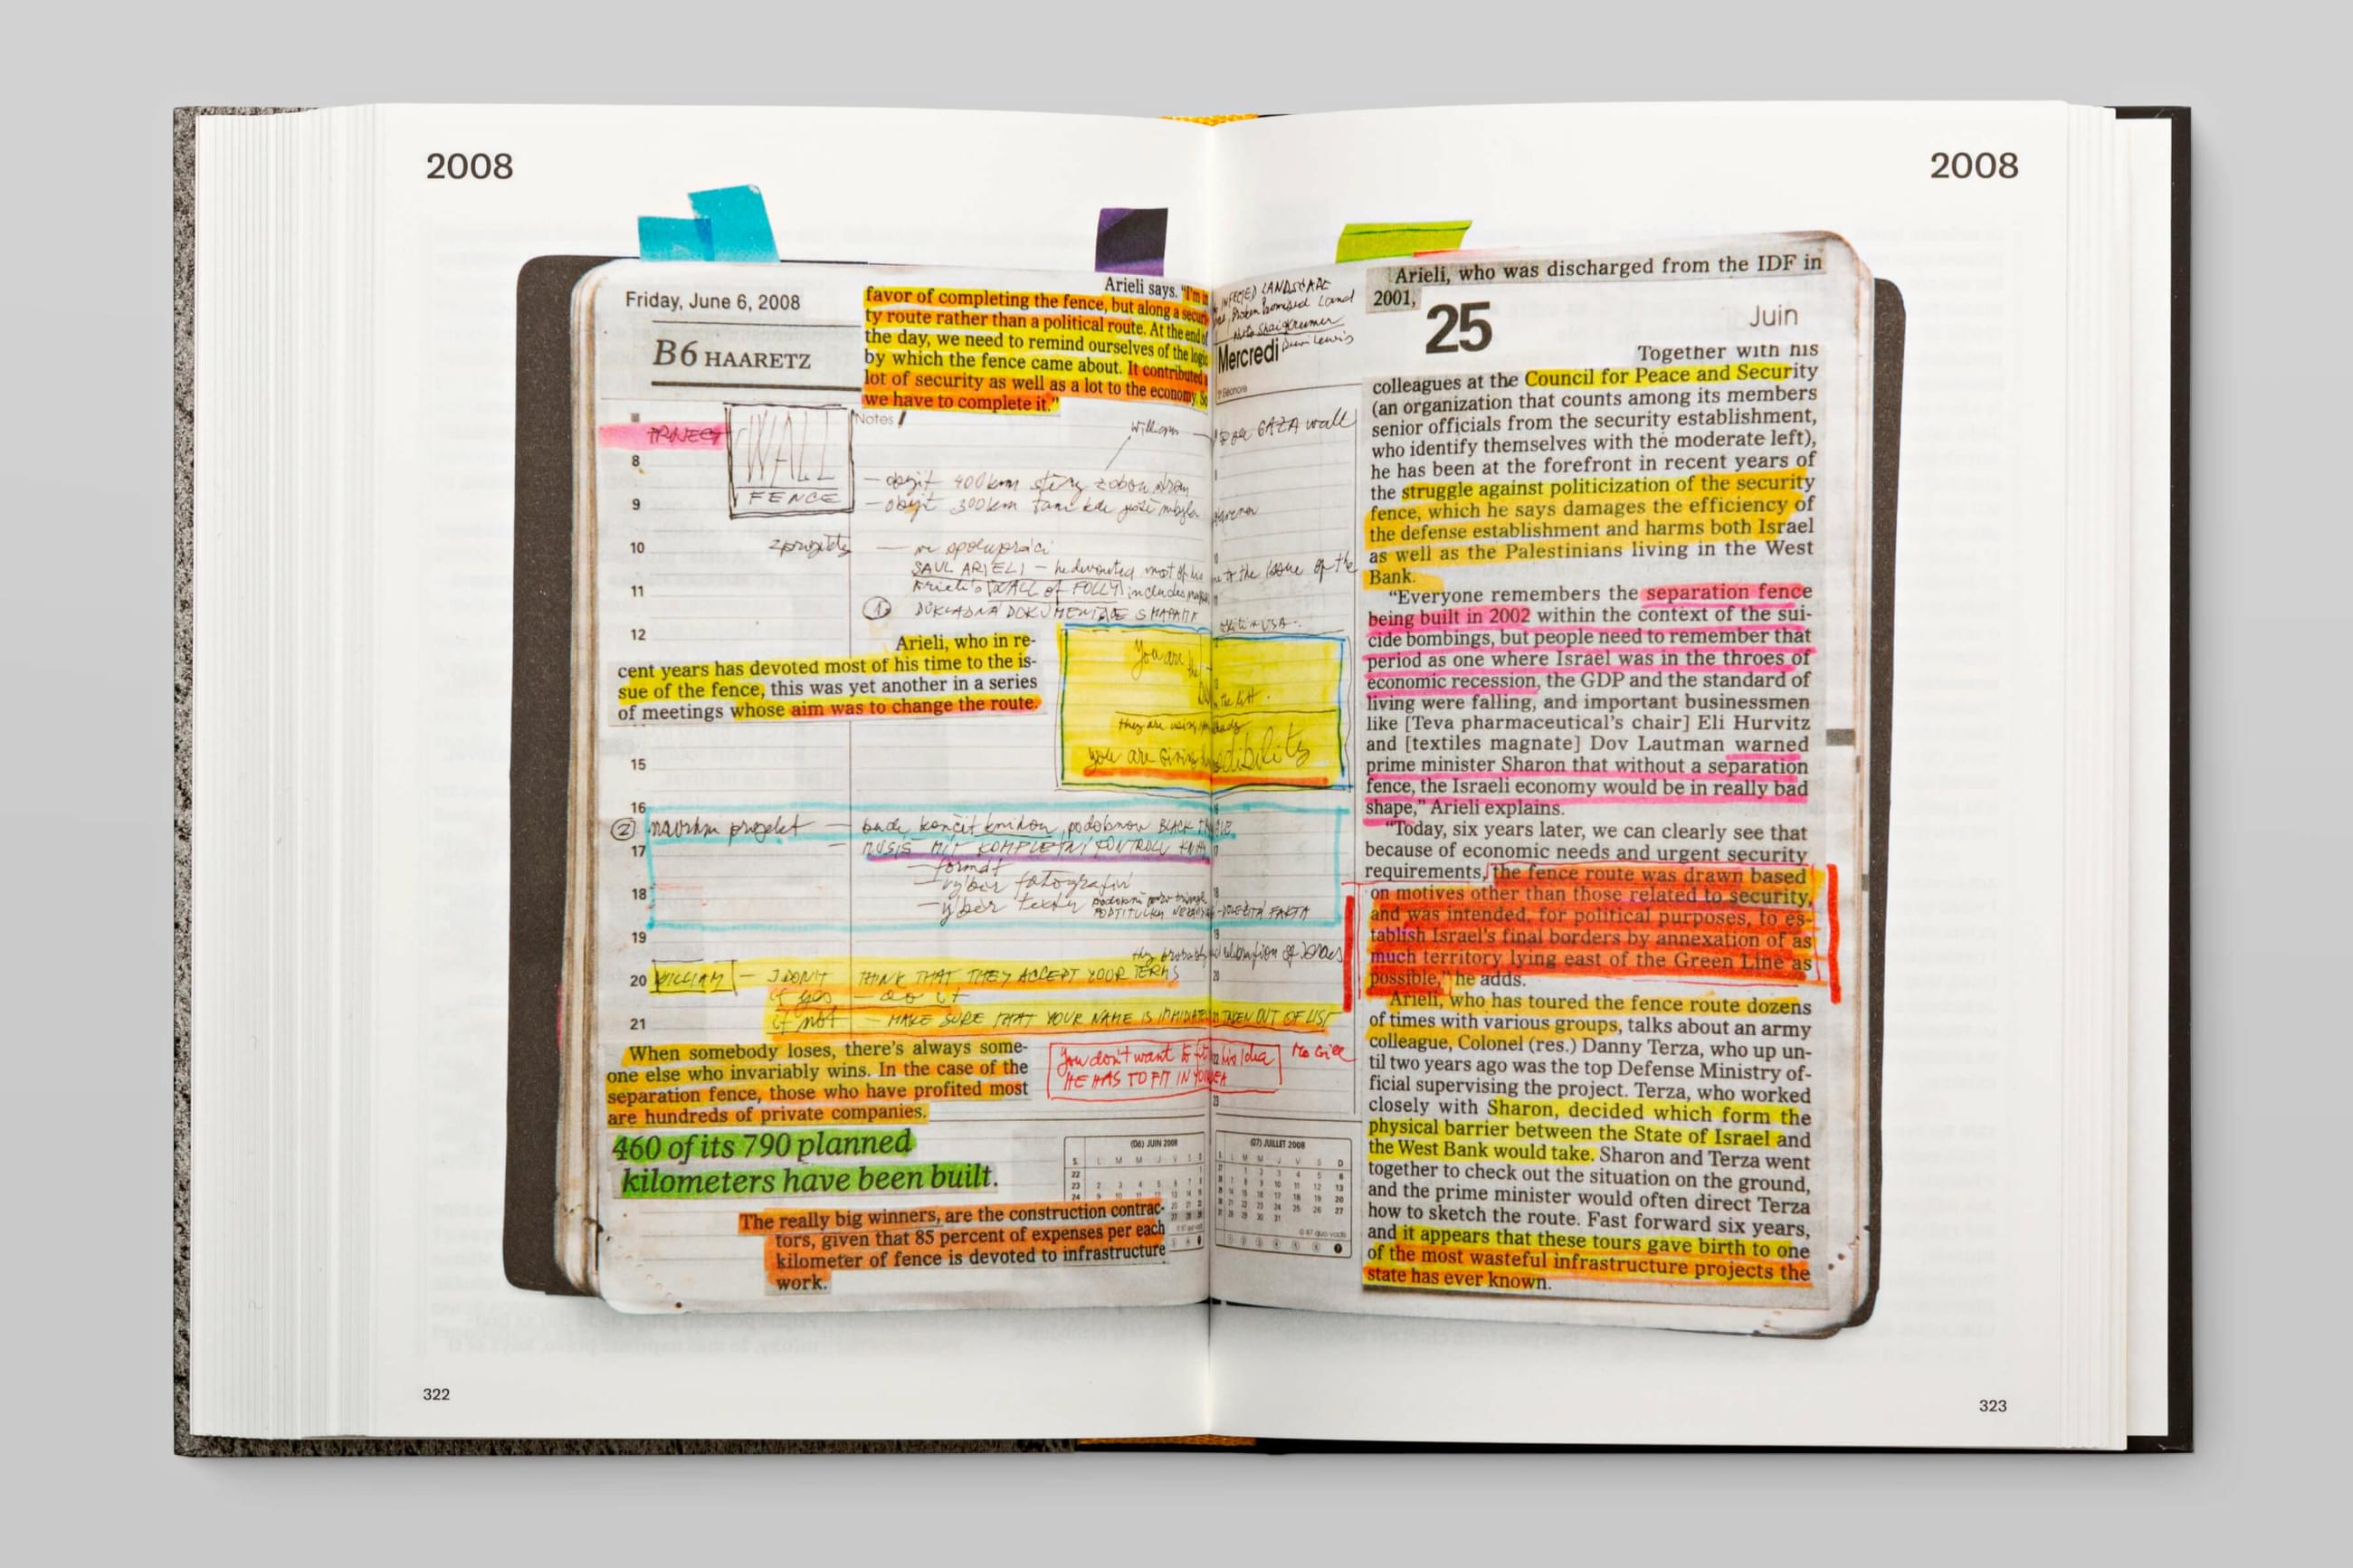 2008
2008
Friday, June 6, 2008
B6 HAARETZ
Arieli says. "I'm in
favor of completing the fence, but along a securi-
ty route rather than a political route. At the end of
the day, we need to remind ourselves of the logic
by which the fence came about. It contributed a
lot of security as well as a lot to the economy. So
we have to complete it."
Notes
PROJECT
WALL
FENCE
William
8
9
10
11
12
15
16
17
18
19
20
21
400 km
300 km
SAUL ARIELI – he devouted most of his
Arieli's WALL of FOLLY includes
1
Arieli, who in re-
cent years has devoted most of his time to the is-
sue of the fence, this was yet another in a series
of meetings whose aim was to change the route.
You are the
in the list.
they are using
you are giving
2 navrhnu projekt — bude končit knihou, podobnou BLACK TRIANGLE
— MUSÍŠ MÍT KOMPLETNÍ KONTROLU
— formát
— výběr fotografií
— výběr textu
WILLIAM — I DON'T THINK THAT THEY ACCEPT YOUR TERMS
if yes — do it
if not — MAKE SURE THAT YOUR NAME IS IMMIDIATELY TAKEN OUT OF LIST
You don't want to fit his idea
HE HAS TO FIT IN YOUR IDEA
When somebody loses, there's always some-
one else who invariably wins. In the case of the
separation fence, those who have profited most
are hundreds of private companies.
460 of its 790 planned
kilometers have been built.
The really big winners, are the construction contrac-
tors, given that 85 percent of expenses per each
kilometer of fence is devoted to infrastructure
work.
(06) JUIN 2008
INFECTED LANDSCAPE
Broken Promised Land
Shai Kremer
Dewi Lewis
Mercredi
GAZA wall
to the issue of the
(07) JUILLET 2008
Arieli, who was discharged from the IDF in
2001,
25
Juin
Together with his
colleagues at the Council for Peace and Security
(an organization that counts among its members
senior officials from the security establishment,
who identify themselves with the moderate left),
he has been at the forefront in recent years of
the struggle against politicization of the security
fence, which he says damages the efficiency of
the defense establishment and harms both Israel
as well as the Palestinians living in the West
Bank.
"Everyone remembers the separation fence
being built in 2002 within the context of the sui-
cide bombings, but people need to remember that
period as one where Israel was in the throes of
economic recession, the GDP and the standard of
living were falling, and important businessmen
like [Teva pharmaceutical's chair] Eli Hurvitz
and [textiles magnate] Dov Lautman warned
prime minister Sharon that without a separation
fence, the Israeli economy would be in really bad
shape," Arieli explains.
"Today, six years later, we can clearly see that
because of economic needs and urgent security
requirements, the fence route was drawn based
on motives other than those related to security,
and was intended, for political purposes, to es-
tablish Israel's final borders by annexation of as
much territory lying east of the Green Line as
possible," he adds.
Arieli, who has toured the fence route dozens
of times with various groups, talks about an army
colleague, Colonel (res.) Danny Terza, who up un-
til two years ago was the top Defense Ministry of-
ficial supervising the project. Terza, who worked
closely with Sharon, decided which form the
physical barrier between the State of Israel and
the West Bank would take. Sharon and Terza went
together to check out the situation on the ground,
and the prime minister would often direct Terza
how to sketch the route. Fast forward six years,
and it appears that these tours gave birth to one
of the most wasteful infrastructure projects the
state has ever known.
322
323